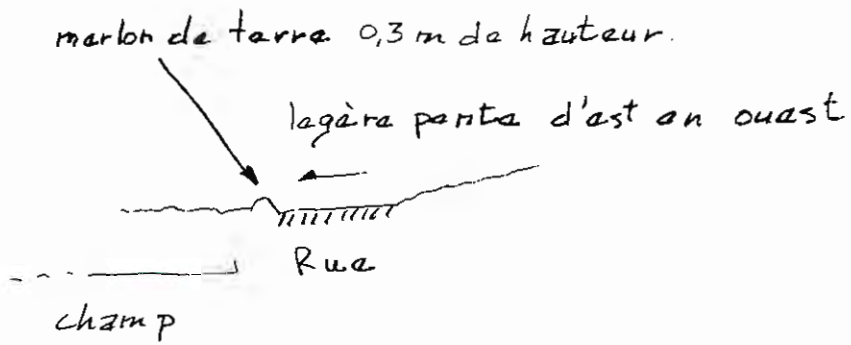 merlon de terre 0,3 m de hauteur.
legère pente d'est en ouest
Rue
champ